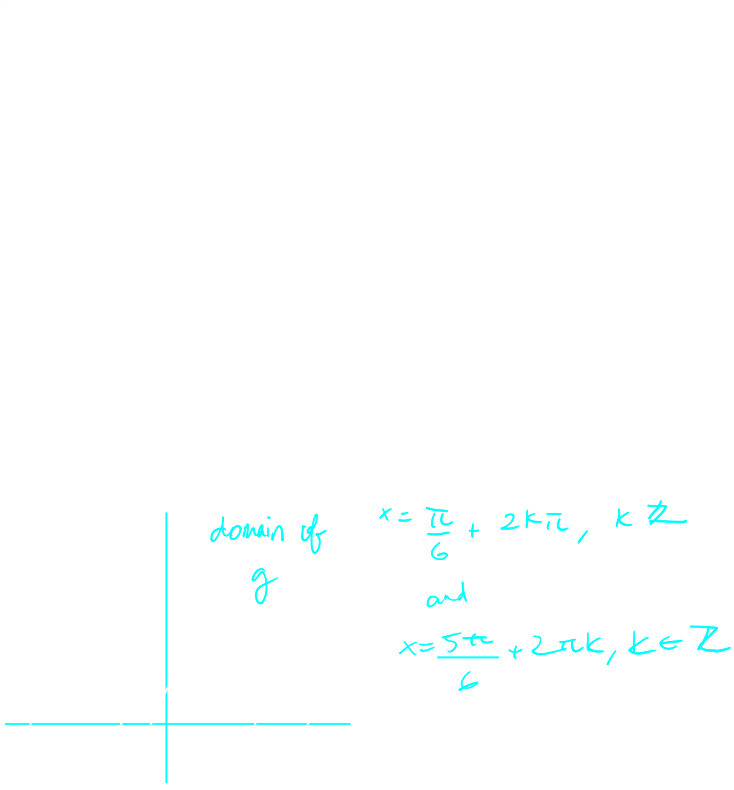 domain of
g
x = π/6 + 2kπ, k ℤ
and
x = 5π/6 + 2πk, k ∈ ℤ